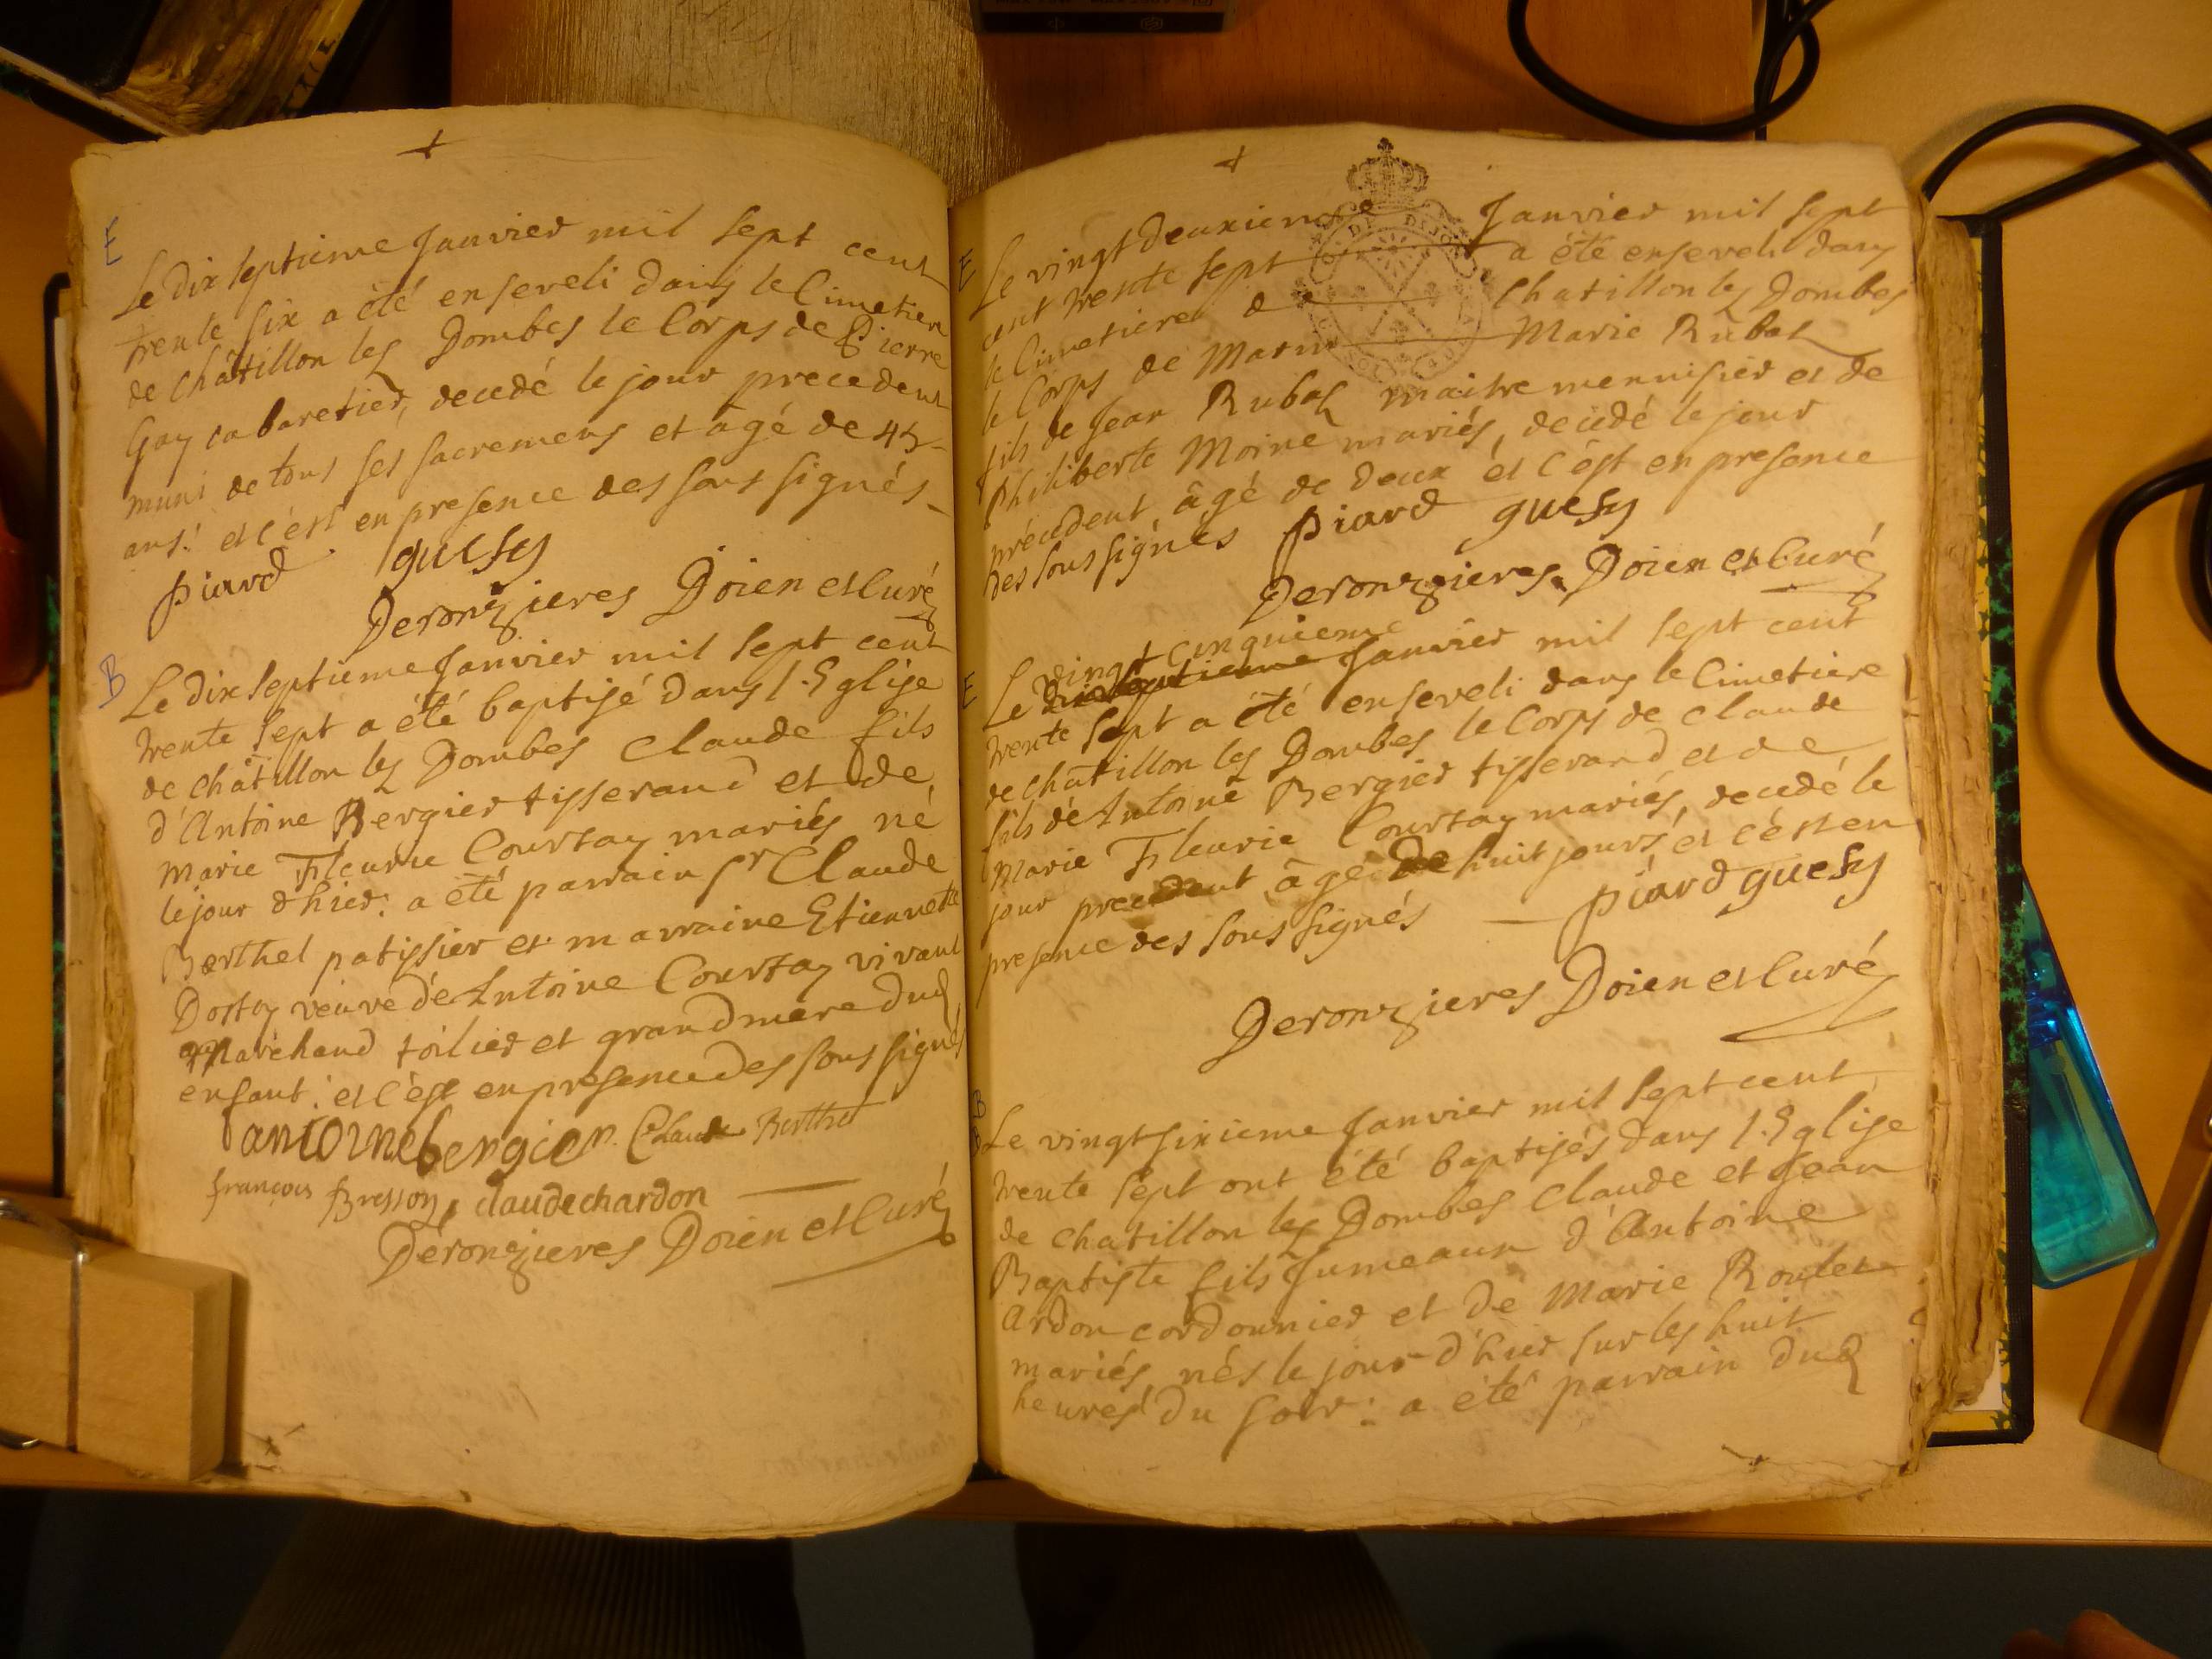 E
Le dix septieme Janvier mil sept cent
trente six a été enseveli dans le Cimetiere
de châtillon les Dombes le Corps de Pierre
Gay cabaretier, decedé le jour precedent
muni de tous ses sacremens et âgé de 45
ans: et c'est en presence des sous signés
piard guesy
Deronzieres Doien et Curé
B
Le dix septieme Janvier mil sept cent
trente sept a été baptisé dans l'Eglise
de châtillon les Dombes Claude fils
d'Antoine Bergier tisserand et de
Marie Fleurie Courtay mariés né
le jour d'hier: a été parrain sr Claude
Berthel patissier et marraine Etiennette
Dortoy veuve d'Antoine Courtay vivant
marchand toilier et grand mere dud
enfant: et c'est en presence des sous signés
antoine bergier. Claude Berthet
françois Bresson, claude chardon
Deronzieres Doien et Curé
E
Le vingt deuxieme Janvier mil sept
cent trente sept a été enseveli dans
le Cimetiere de Chatillon les Dombes
le Corps de Marie Rubat
fils de Jean Rubat maitre menuisier et de
Philiberte Moine mariés, decédé le jour
précedent, âgé de Deux et c'est en presence
des sous signés piard guesy
Deronzieres Doien et Curé
vingt cinquieme
E
Le Janvier mil sept cent
trente sept a été enseveli dans le Cimetiere
de châtillon les Dombes le Corps de Claude
fils d'Antoine Bergier tisserand et de
Marie Fleurie Courtay mariés, decedé le
jour precedent âgé de huit jours et c'est en
presence des sous signés piard guesy
Deronzieres Doien et Curé
B
B
Le vingt sixieme Janvier mil sept cent
trente sept ont été baptisés dans l'Eglise
de chatillon les Dombes Claude et Jean
Baptiste fils Jumeaux d'Antoine
Ardon cordonnier et de Marie Roulet
mariés, nés le jour d'hier sur les huit
heures du soir: a été parrain dud